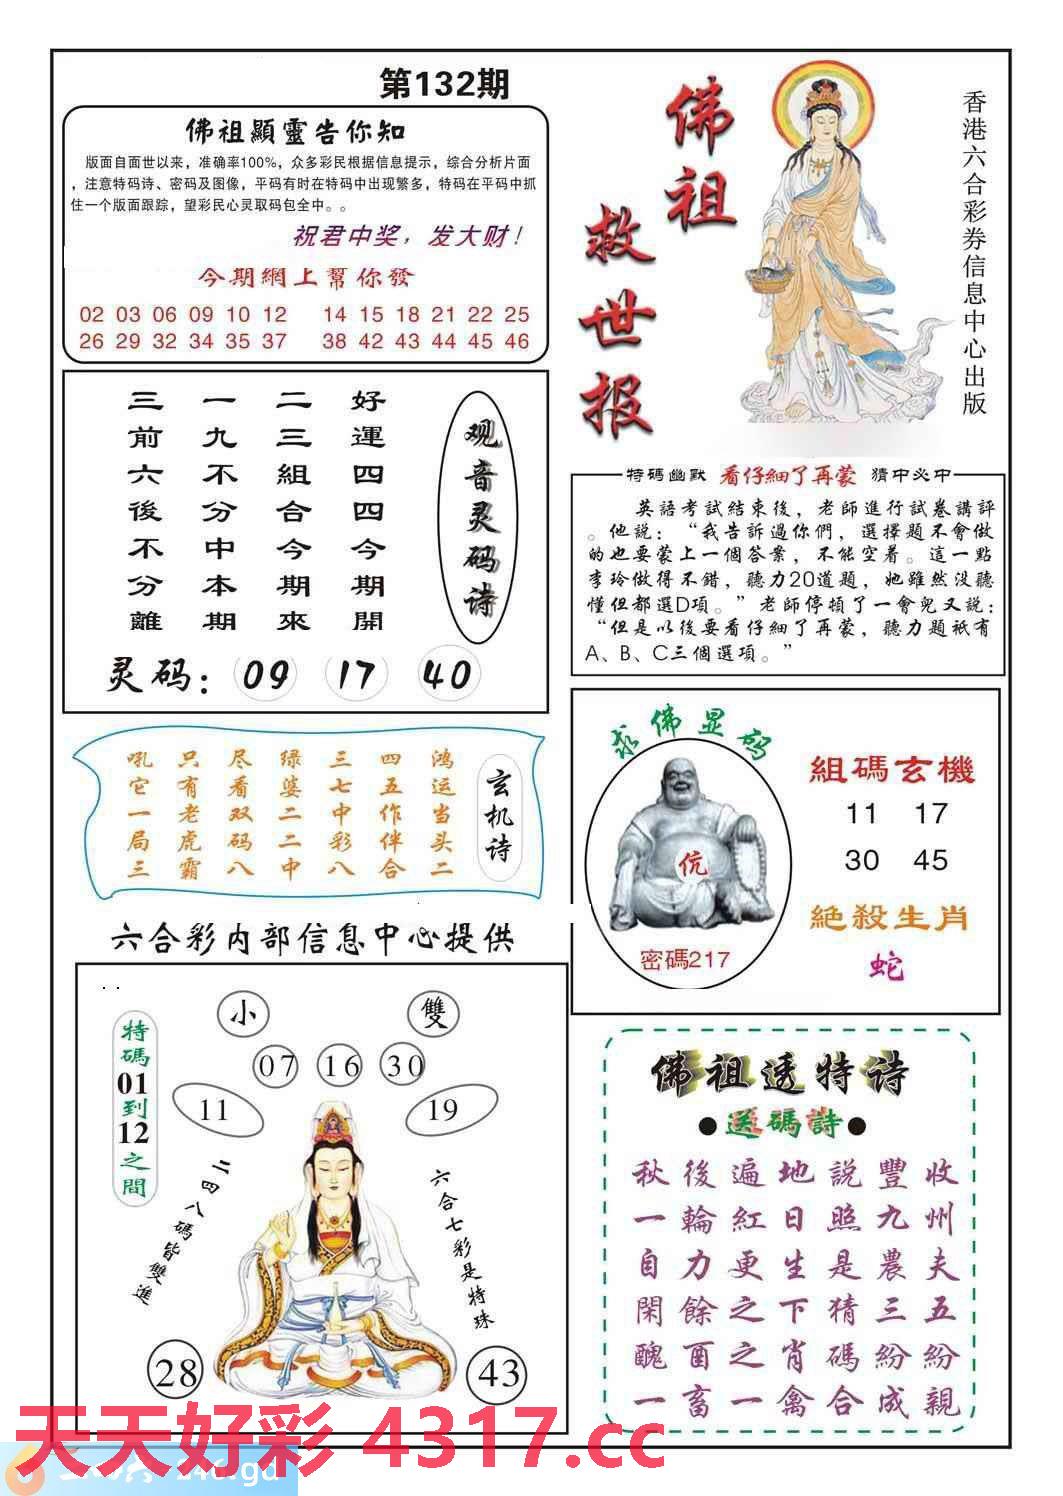 第132期
佛祖顯靈告你知
版面自面世以来，准确率100%，众多彩民根据信息提示，综合分析片面
，注意特码诗、密码及图像，平码有时在特码中出现繁多，特码在平码中抓
住一个版面跟踪，望彩民心灵取码包全中。。
祝君中奖，发大财！
今期網上幫你發
02 03 06 09 10 12 14 15 18 21 22 25
26 29 32 34 35 37 38 42 43 44 45 46
佛祖
救世报
香港六合彩券信息中心出版
观音灵码诗
好運四四今期開
二三組合今期來
一九不分中本期
三前六後不分離
灵码：09 17 40
特碼幽默 看仔細了再蒙 猜中必中
英語考試結束後，老師進行試卷講評
。他說：“我告訴過你們，選擇題不會做
的也要蒙上一個答案，不能空着。這一點
李玲做得不錯，聽力20道題，她雖然没聽
懂但都選D項。”老師停頓了一會兒又說：
“但是以後要看仔細了再蒙，聽力題衹有
A、B、C三個選項。”
玄机诗
鸿运当头二
四五作伴合
三七中彩八
绿婆二二中
尽看双码八
只有老虎霸
吼它一局三
求佛显码
伉
密碼217
組碼玄機
11 17
30 45
絕殺生肖
蛇
六合彩内部信息中心提供
特碼01到12之間
小 雙
07 16 30
11 19
二四八碼皆雙進
六合七彩是特珠
28 43
佛祖透特诗
●送碼詩●
秋後遍地説豐收
一輪紅日照九州
自力更生是農夫
閑餘之下猜三五
醜酉之肖碼紛紛
一畜一禽合成親
天天好彩 4317.cc
246.gd